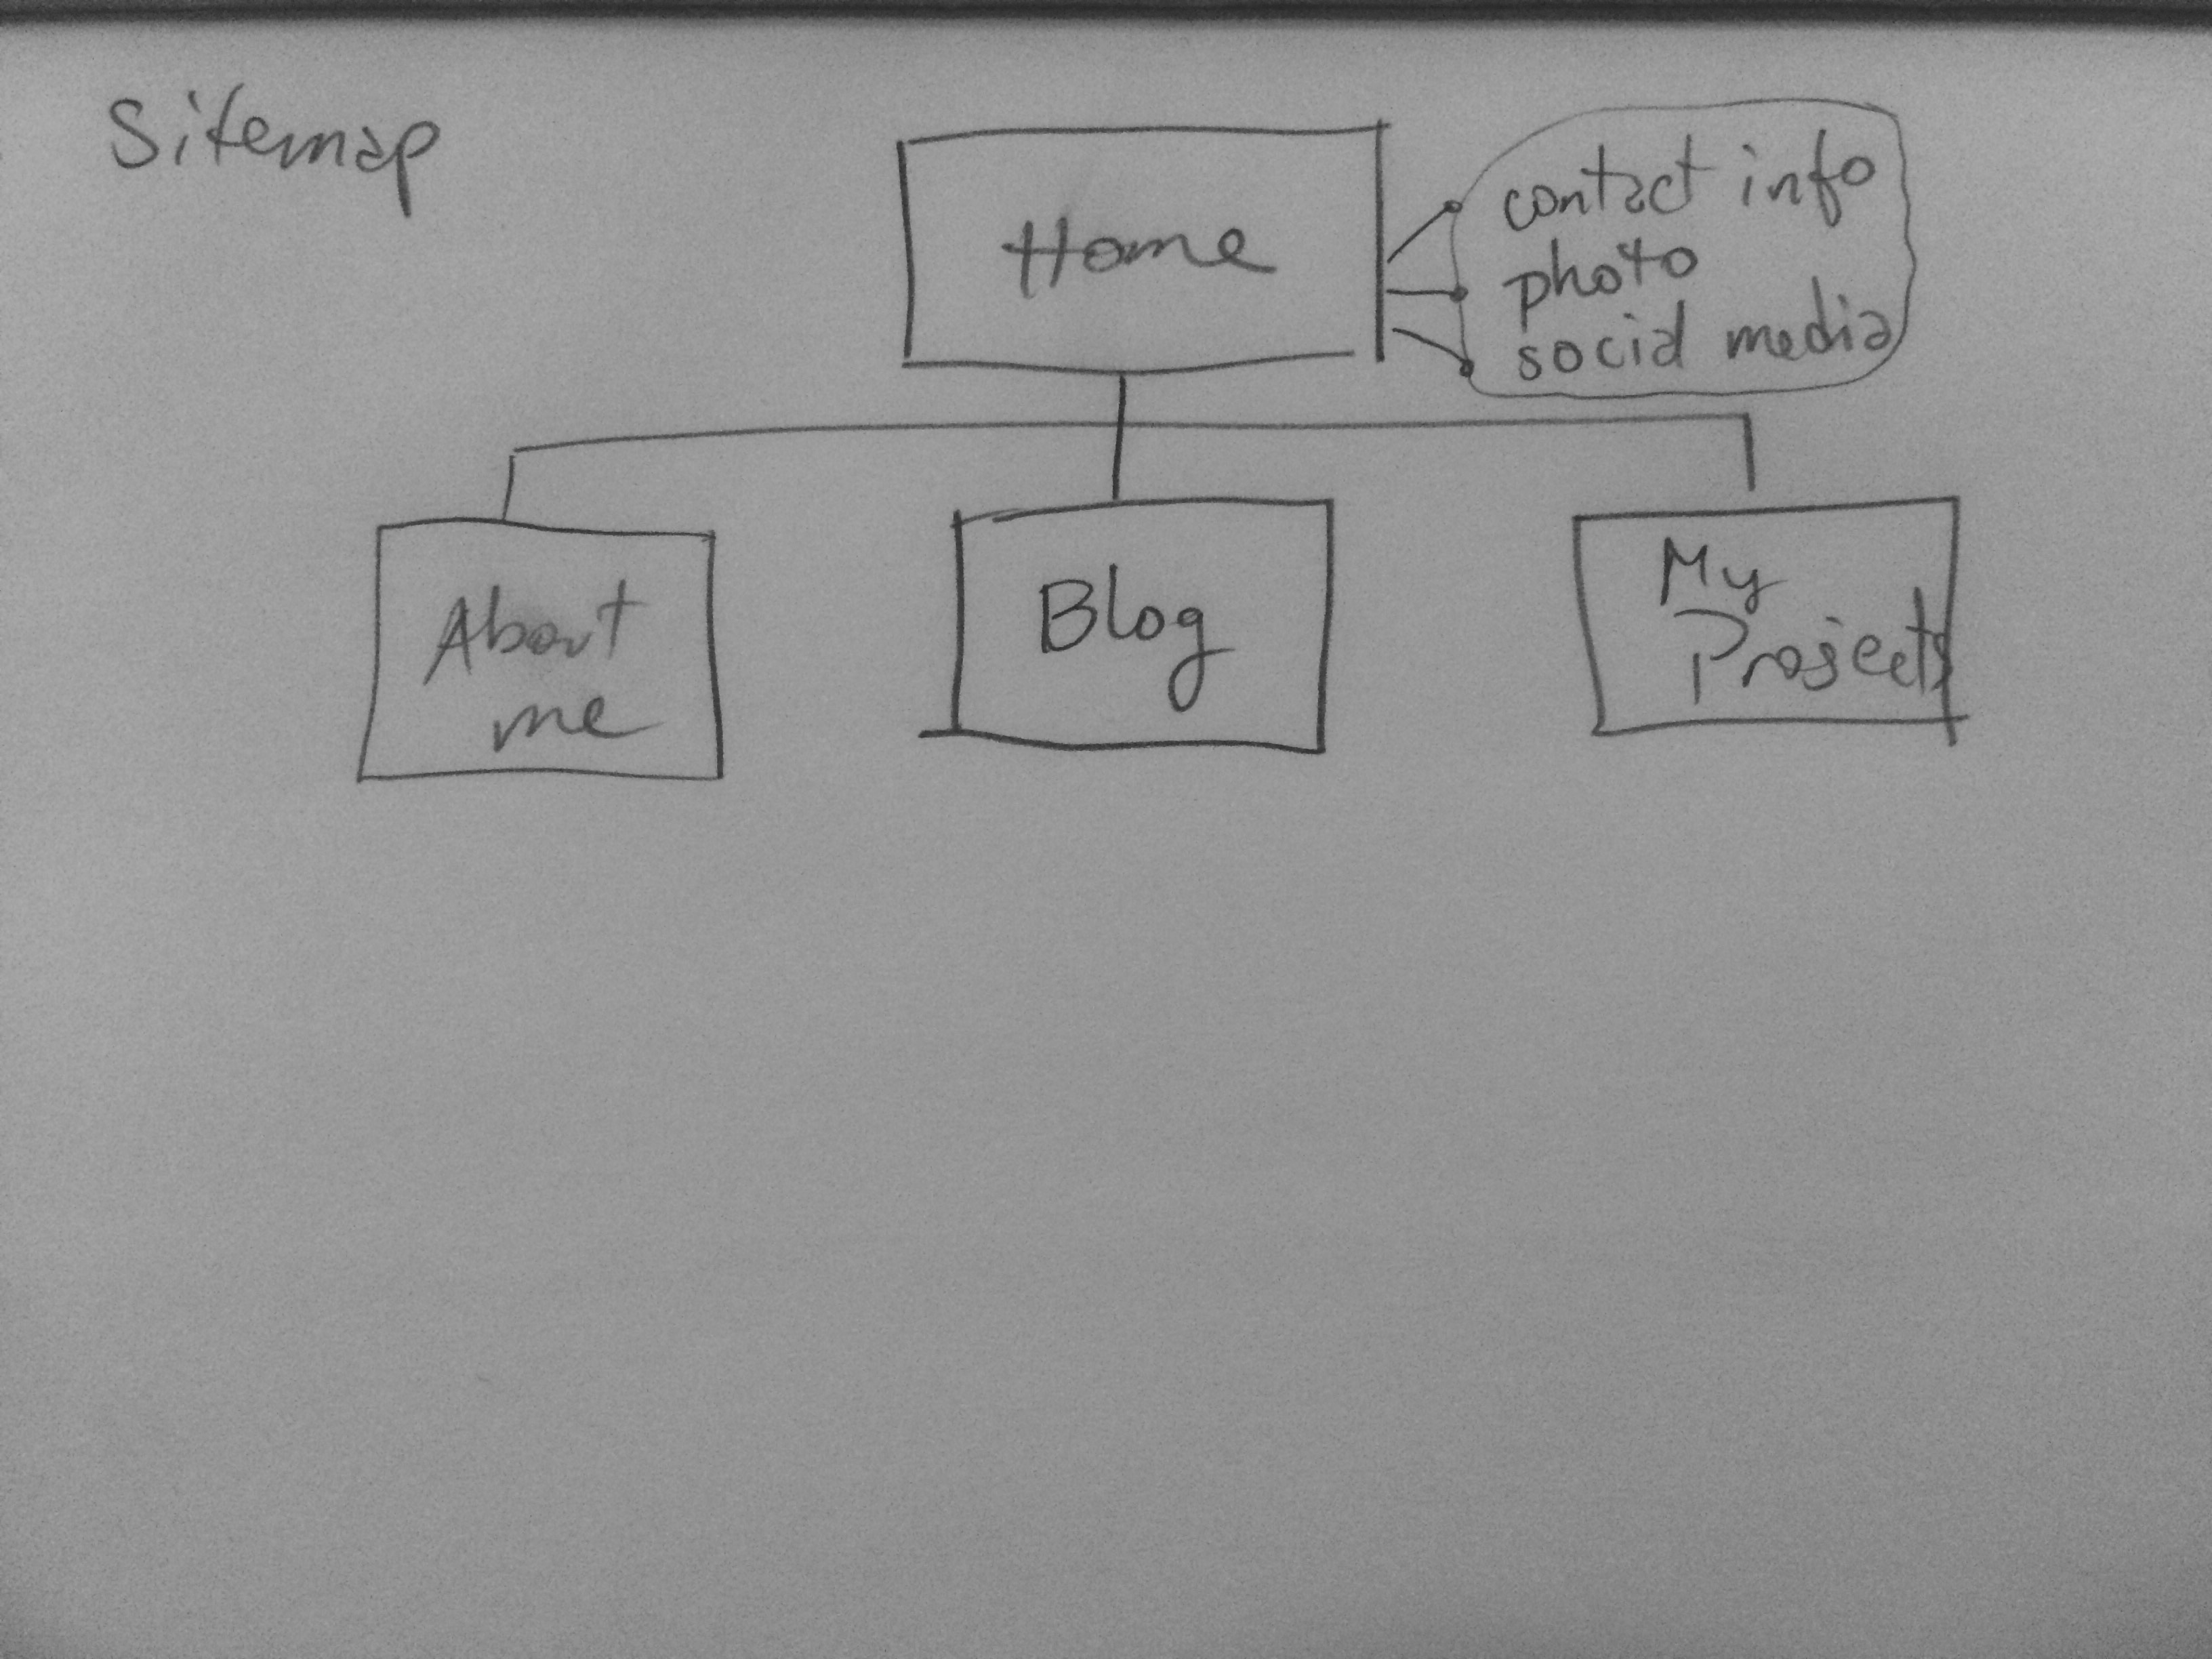 Sitemap
Home
contact info
photo
social media
About
me
Blog
My
Projects